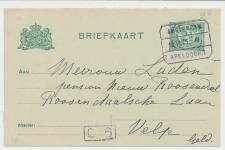 BRIEFKAART
AMSTERDAM
APELDOORN
AAN
Mevrouw Luden
pension Nieuw Roosendaal
Roosendaalsche Laan
Velp
Geld.
Afzender:
C 6